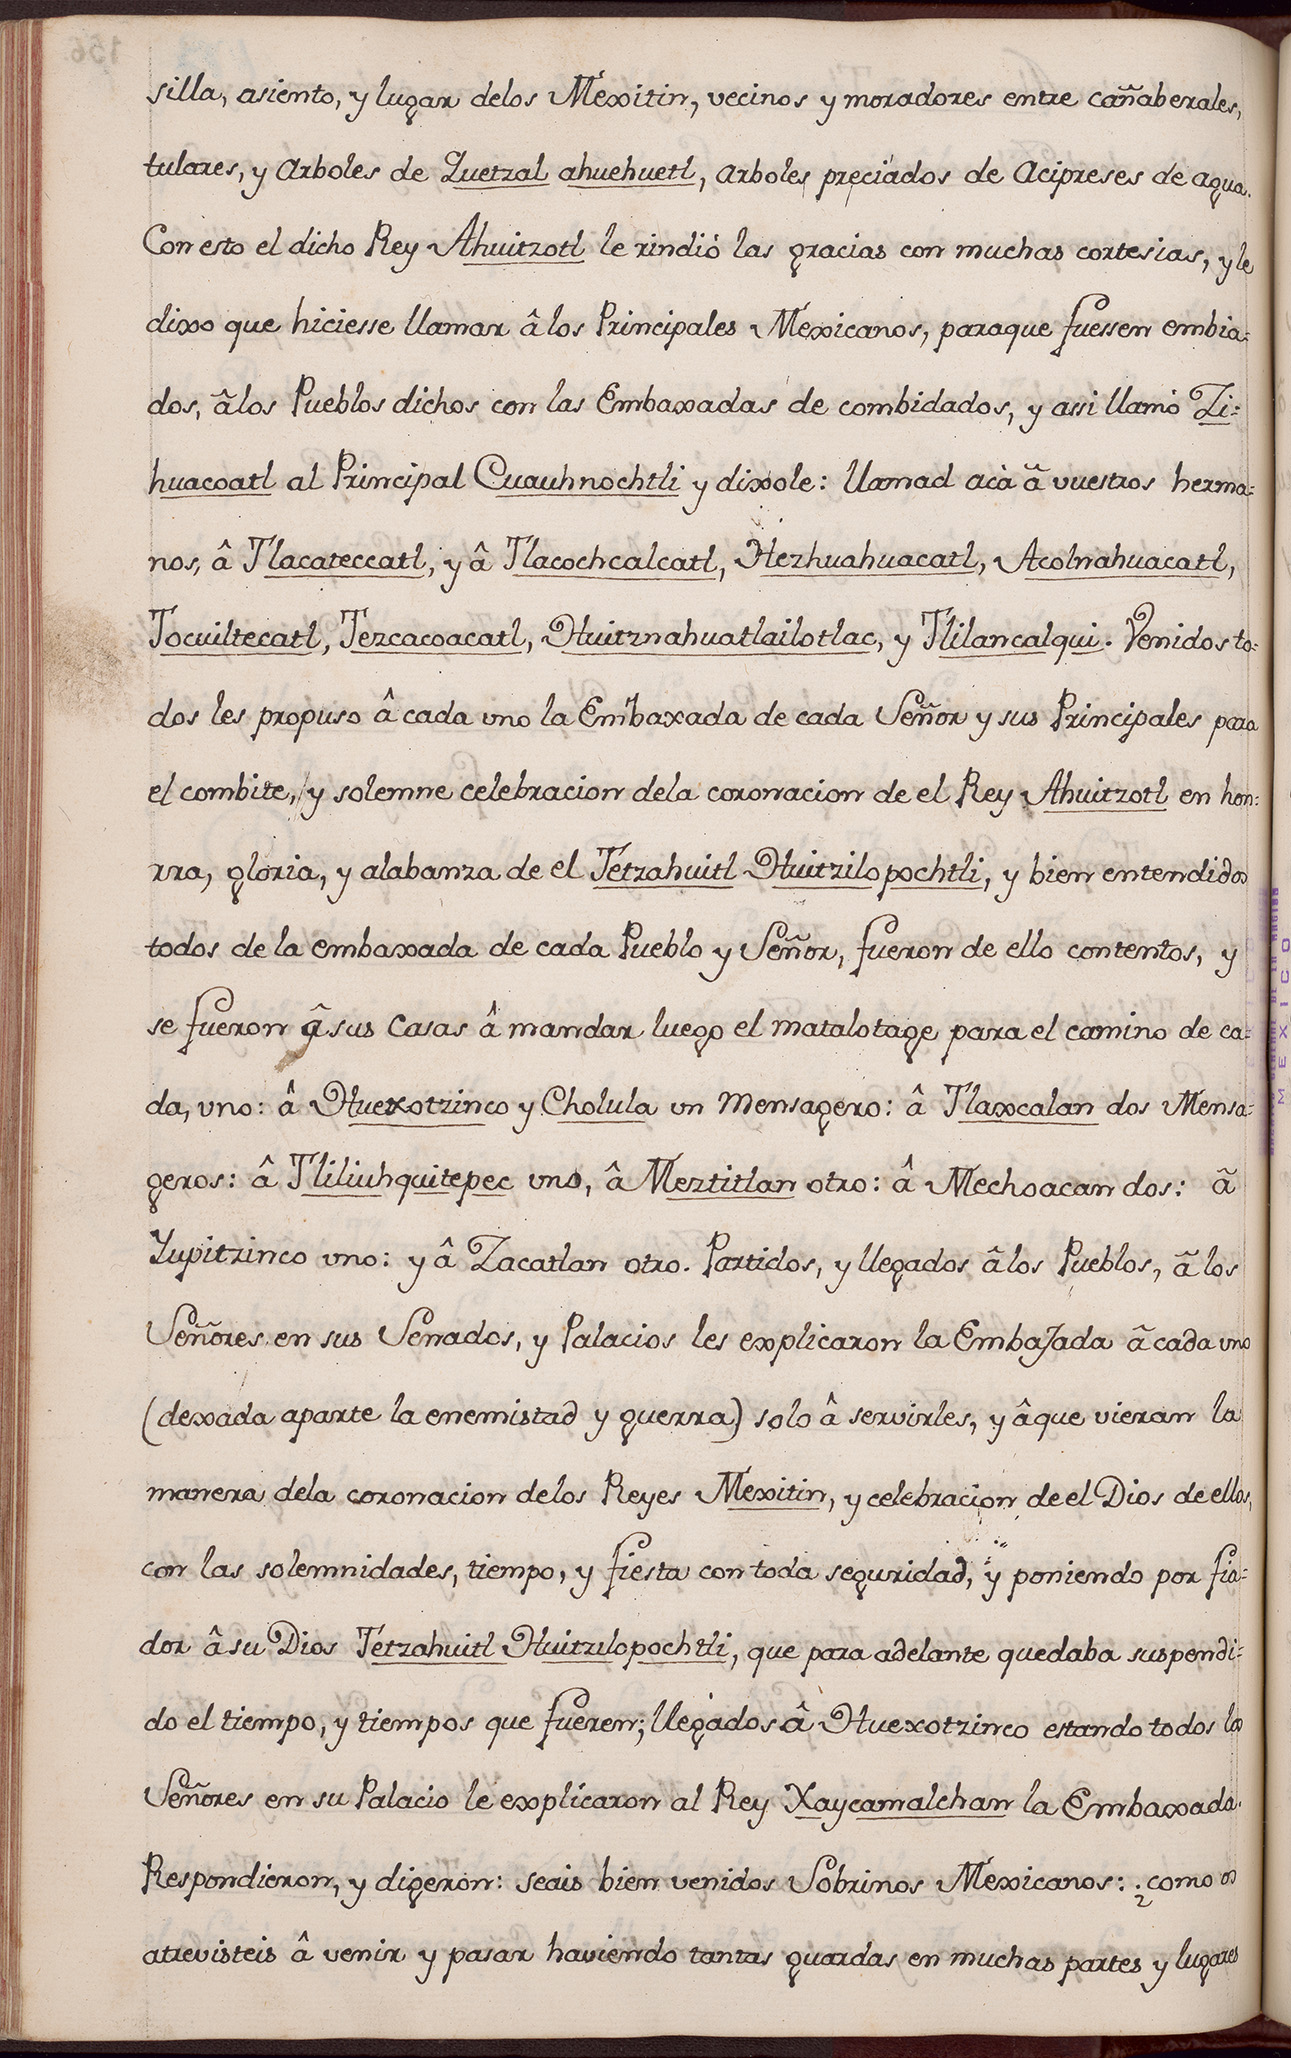 silla, asiento, y lugar delos Mexitin, vecinos y moradores entre cañaberales,
tulares, y Arboles de Quetzal ahuehuetl, arboles preciados de Acipreses de agua.
Con esto el dicho Rey Ahuitzotl le rindió las gracias con muchas cortesias, y le
dixo que hiciesse llamar â los Principales Mexicanos, paraque fuessen embia=
dos, âlos Pueblos dichos con las Embaxadas de combidados, y assi llamó Zi=
huacoatl al Principal Cuauhnochtli y dixole: llamad acà â vuestros herma=
nos, â Tlacateccatl, y â Tlacochcalcatl, Hezhuahuacatl, Acolnahuacatl,
Tocuiltecatl, Tezcacoacatl, Huitznahuatlailotlac, y Tlilancalqui. Venidos to=
dos les propuso â cada uno la Embaxada de cada Señor y sus Principales para
el combite, y solemne celebracion dela coronacion de el Rey Ahuitzotl en hon=
rra, gloria, y alabanza de el Tetzahuitl Huitzilopochtli, y bien entendidos
todos de la embaxada de cada Pueblo y Señor, fueron de ello contentos, y
se fueron â sus Casas â mandar luego el matalotage para el camino de ca=
da, uno: â Huexotzinco y Cholula un Mensagero: â Tlaxcalan dos Mensa=
geros: â Tliliuhquitepec uno, â Meztitlan otro: â Mechoacan dos: â
Yupitzinco uno: y â Zacatlan otro. Partidos, y llegados â los Pueblos, â los
Señores en sus Senados, y Palacios les explicaron la EmbaJada â cada uno
(dexada aparte la enemistad y guerra) solo â servirles, y âque vieran la
manera dela coronacion delos Reyes Mexitin, y celebracion de el Dios de ellos,
con las solemnidades, tiempo, y fiesta con toda seguridad, y poniendo por fia=
dor â su Dios Tetzahuitl Huitzilopochtli, que para adelante quedaba suspendi=
do el tiempo, y tiempos que fueren; llegados â Huexotzinco estando todos los
Señores en su Palacio le explicaron al Rey Xaycamalchan la Embaxada.
Respondieron, y digeron: seais bien venidos Sobrinos Mexicanos: ¿como os
atrevisteis â venir y pasar haviendo tantas guardas en muchas partes y lugares
MEXICO